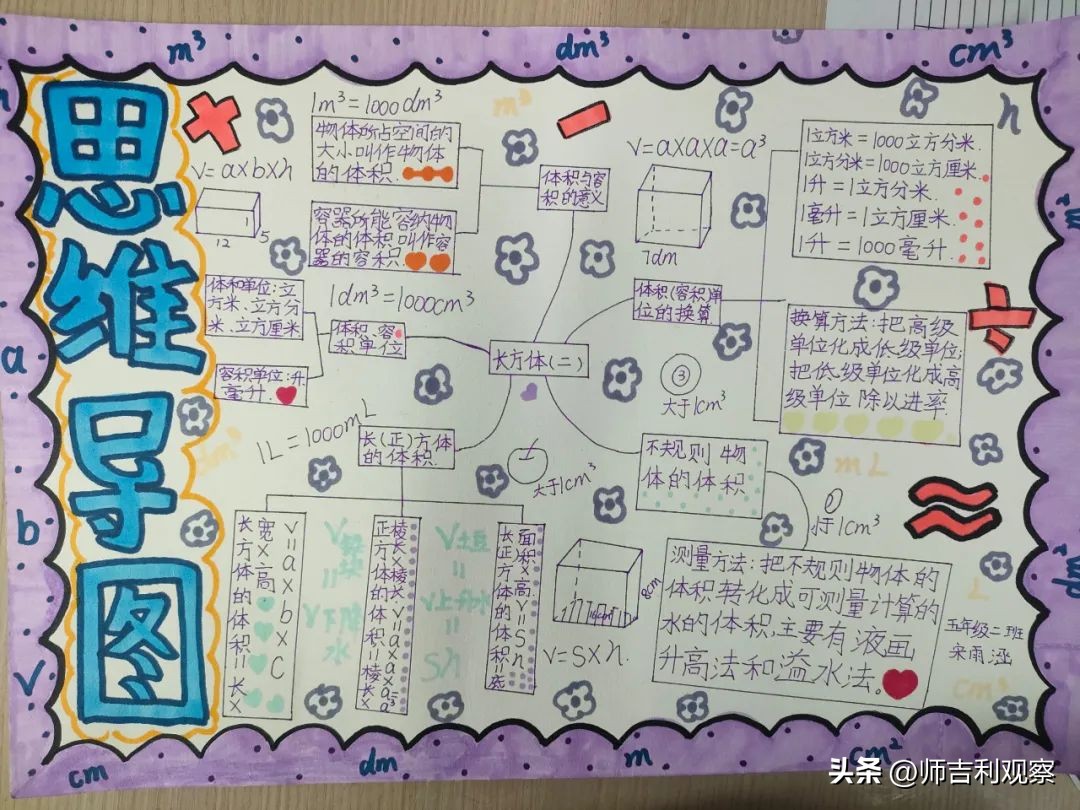 m³
dm³
cm³
思维导图
1m³=1000dm³
物体所占空间的
大小叫作物体
的体积.
V=a×b×h
12
5
容器所能容纳物
体的体积叫作容
器的容积.
体积与容
积的意义
m³
V=a×a×a=a³
7dm
1立方米=1000立方分米.
1立方分米=1000立方厘米.
1升=1立方分米.
1毫升=1立方厘米.
1升=1000毫升.
h
体积单位:立
方米、立方分
米、立方厘米
容积单位:升.
毫升.
1dm³=1000cm³
体积、容
积单位
体积(容积)单
位的换算
换算方法:把高级
单位化成低级单位;
把低级单位化成高
级单位 除以进率.
长方体(二)
③
大于1cm³
1L=1000mL
长(正)方体
的体积.
大于1cm³
不规则物
体的体积
mL
①
小于1cm³
长方体的体积=长×
宽×高
V=a×b×c
正方体的体积=棱长×
棱长×棱长
V=a×a×a=a³
长正方体的体积=底
面积×高.
V=Sh
V土豆
=
V上升水
=
Sh
V下降
水
V=S×h.
测量方法:把不规则物体的
体积转化成可测量计算的
水的体积.主要有液面
升高法和溢水法。
L
五年级二班
宋雨涵
cm³
a
b
V
dm³
cm
dm
m
cm²
头条 @师吉利观察